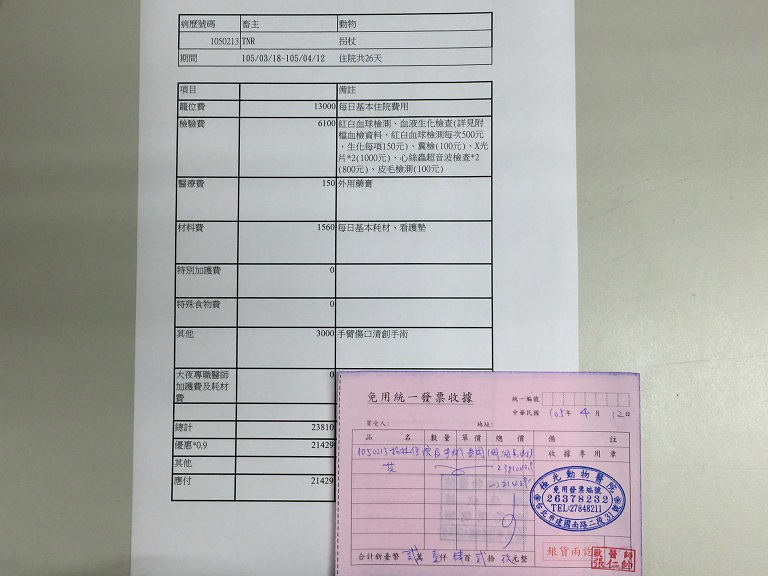 病歷號碼 畜主 動物
1050213 TNR 拐杖
期間 105/03/18-105/04/12 住院共26天
項目 備註
籠位費 13000 每日基本住院費用
檢驗費 6100 紅白血球檢測、血液生化檢查(詳見附
檔血檢資料，紅白血球檢測每次500元
，生化每項150元)、糞檢(100元)、X光
片*2(1000元)、心絲蟲超音波檢查*2
(800元)、皮毛檢測(100元)
醫療費 150 外用藥膏
材料費 1560 每日基本耗材、看護墊
特別加護費 0
特殊食物費 0
其他 3000 手臂傷口清創手術
大夜專職醫師 0
加護費及耗材
費
總計 23810
優惠*0.9 21429
其他
應付 21429
免用統一發票收據
統一編號
中華民國 105年 4月 12日
買受人: 地址:
品名 數量 單價 總價 備註
1050213 收據專用章
23810
21429
極光動物醫院
免用發票編號
26378232
TEL/27848211
台北市建國南路二段31號
銀貨兩訖
獸醫師
張仁帥
合計新臺幣 貳萬 壹仟 肆百 貳拾 玖元整